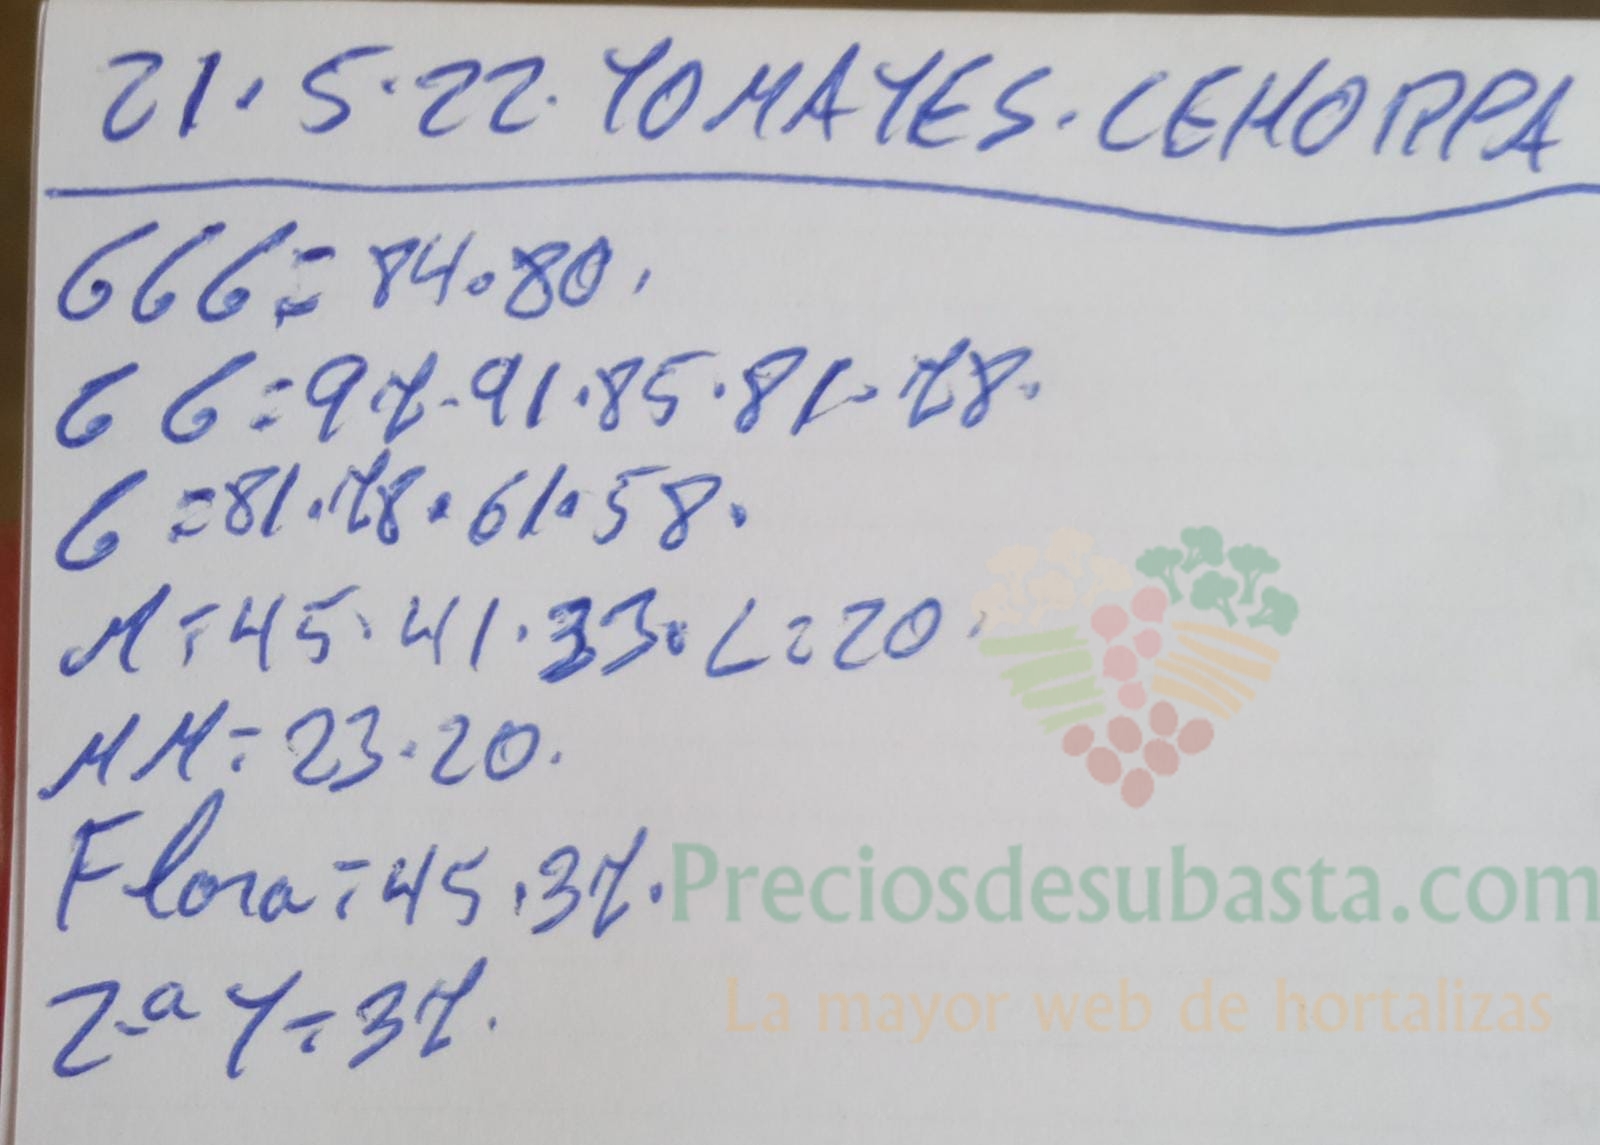 21.5.22.TOMATES.CEHORPA
GGG=84.80.
GG=97.91.85.81.78.
G=81.78.61.58.
M=45.41.33.L=20.
MM=23.20.
Flora=45.37.
2ª T=37.
Preciosdesubasta.com
La mayor web de hortalizas